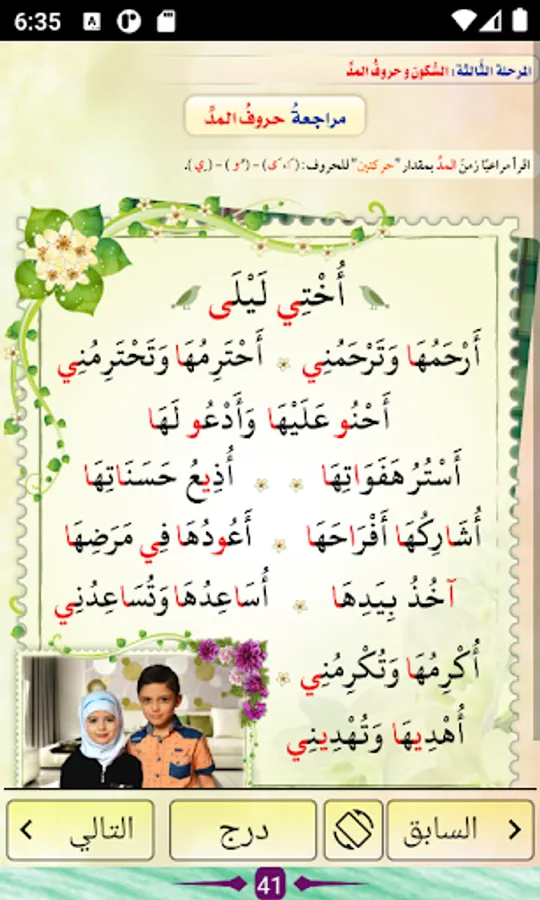 6:35
المرحلة الثَّالثَة: السُّكون و حروفُ المدّ
مراجعةُ حروفُ المدِّ
اقرأ مراعيًا زمنَ المدِّ بمقدار "حركتين" للحروف:
أُخْتِي لَيْلَى
أَرْحَمُهَا وَتَرْحَمُنِي أَحْتَرِمُهَا وَتَحْتَرِمُنِي
أَحْنُو عَلَيْهَا وَأَدْعُو لَهَا
أَسْتُرُ هَفَوَاتِهَا أُذِيعُ حَسَنَاتِهَا
أُشَارِكُهَا أَفْرَاحَهَا أَعُودُهَا فِي مَرَضِهَا
آخُذُ بِيَدِهَا أُسَاعِدُهَا وَتُسَاعِدُنِي
أُكْرِمُهَا وَتُكْرِمُنِي
أُهْدِيهَا وَتُهْدِينِي
السابق درج التالي
41